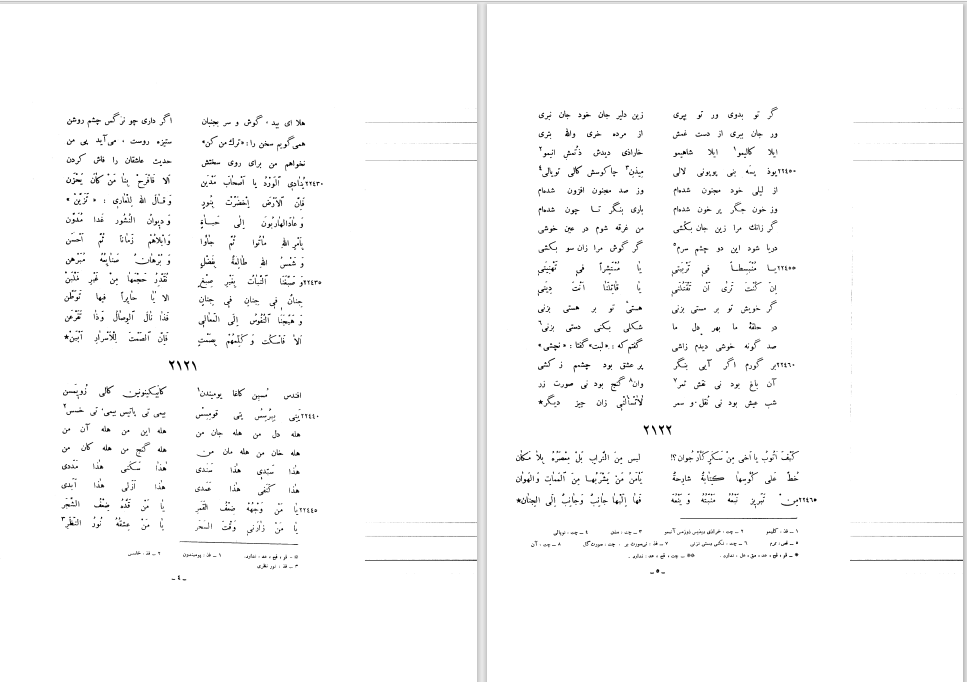 هلا ای بید، گوش و سر بجنبان اگر داری چو نرگس چشم روشن
همی‌گویم سخن را: «ترک من کن» ستیزه روست، می‌آید پی من
نخواهم من برای روی سختش حدیث عاشقان را فاش کردن
۲۲۴۳۰ یُنادِی الْوَرْدُ یا اَصْحابَ مَدْیَن اَلا فَافْرَحْ بِنا مَنْ کانَ یَحْزَن
فَاِنَّ الْاَرْضَ اِخْضَرَّتْ بِنُورٍ وَ قالَ اللهُ لِلْعارِی: «تَزَیَّنْ»
وَ عادَ الهارِبُونَ اِلی حَیاةٍ وَ دیوانُ النُّشُورِ غَدا مُدَوَّن
بِاَمْرِ اللهِ ماتُوا ثُمَّ جاؤا وَ اَبْلاهُمْ زَماناً ثُمَّ اَحْسَن
وَ شَمْسُ اللهِ طالِعَةٌ بِفَضْلٍ وَ بُرْهانُ صَنایِعُهُ مُبَرْهَن
۲۲۴۳۵ وَ صَبَّغْنَا النَّباتَ بِغَیْرِ صِبْغٍ نُقَدِّرُ حَجْمَها مِنْ غَیْرِ مَلْبَن
جِنانٌ فِی جِنانٍ فِی جِنانٍ اَلا یا حایِراً فیها تَوَطَّن
وَ هَیَّجْنَا النُّفُوسَ اِلَی الْمَعالِی فَذا نالَ الْوِصالَ وَ ذا تَفَرْعَن
اَلا فَاسْکُتْ وَ کَلِّمْهُمْ بِصَمْتٍ فَاِنَّ الصَّمْتَ لِلْاَسْرارِ اَبْیَن*
۲۱۲۱
افندس مسین کاغا یومیندن۱ کابیکینونین کالی زویمسن
۲۲۴۴۰ یتی بیرسس یتی قومسس بیمی تی پاتیس بیمی تی خسس۲
هله دل من هله جان من هله این من هله آن من
هله خان من هله مان من هله گنج من هله کان من
هٰذا سَیِّدی هٰذا سَنَدی هٰذا سَکَنی هٰذا مَدَدی
هٰذا کَنَفی هٰذا عَمَدی هٰذا اَزَلی هٰذا اَبَدی
۲۲۴۴۵ یا مَنْ وَجْهُهُ ضِعْفُ الْقَمَر یا مَنْ قَدُّهُ ضِعْفُ الشَّجَر
یا مَنْ زارَنی وَقْتَ السَّحَر یا مَنْ عِشْقُهُ نُورُ النَّظَر۳
* ـ قو، قح، عد، ندارد. ۱ ـ فذ، یومیندون ۲ ـ فذ، خانسی
۳ ـ فذ، نور نظری
ـ ۴ ـ
گر تو بدوی ور تو پری زین دلبر جان خود جان نبری
ور جان ببری از دست غمش از مرده خری والله بتری
ایلا کالیمو۱ ایلا شاهیمو خاراذی دیدش ذتمش انیمو۲
۲۲۴۵۰ یوذ پسه بنی پوپونی لالی میذن۳ چاکوسش کالی تویالی۴
از لیلی خود مجنون شده‌ام وز صد مجنون افزون شده‌ام
وز خون جگر پر خون شده‌ام باری بنگر تا چون شده‌ام
گر زانک مرا زین جان بکشی من غرقه شوم در عین خوشی
دریا شود این دو چشم سرم۵ گر گوش مرا زان سو بکشی
۲۲۴۵۵ یا مُنْبَسِطاً فِی تَرْبِیَتی یا مُبْتَشِراً فِی تَهْنِیَتی
اِنْ کُنْتَ تَری اَنْ تَقْتُلَنی یا قاتِلَنا اَنْتَ دِیَتی
گر خویش تو بر مستی بزنی هستیّ تو بر هستی بزنی
در حلقهٔ ما بهر دل ما شکلی بکنی دستی بزنی۶
صد گونه خوشی دیدم زاشی گفتم که: «لبت» گفتا: «نچشی»
۲۲۴۶۰ بر گورم اگر آیی بنگر پر عشق بود چشمم ز کشی
آن باغ بود نی نقش ثمر۷ وان۸ گنج بود نی صورت زر
شب عیش بود نی نُقل و سمر لا تَسْألْنِی زان چیز دیگر*
۲۱۲۲
کَیْفَ اَتُوبُ یا اَخی مِنْ سَکَرٍ کَارْجُوان؟! لَیْسَ مِنَ التُّرابِ بَلْ مِعْصَرُهُ بِلا مَکان
خُطَّ عَلی کُؤُوسِها کِتابَةٌ شارِحَةٌ یا مَنْ مَنْ یَشْرَبُها مِنَ الْمَماتِ وَ الْهَوان
۲۲۴۶۵ مِنْ تبریز نَبْعُهُ مَنْبَتُهُ وَ یَنْعُهُ فَها اِلَیْها جانِبٌ وَ جانِبٌ اِلَی الْجِنان*
۱ ـ فذ، کلیمو ۲ ـ چت، خراذی دیذیس ذوزمس آنیمو ۳ ـ چت، متذن ۴ ـ چت، تویالی
۵ ـ قص، برم ۶ ـ چت، نکنی دستی نزنی ۷ ـ فذ، نی‌صورت بر، چت، صورت گار ۸ ـ چت، آن
* ـ قو، قح، عد، مق، خل، ندارد. ** ـ چت، قح، عد، ندارد.
ـ ۵ ـ